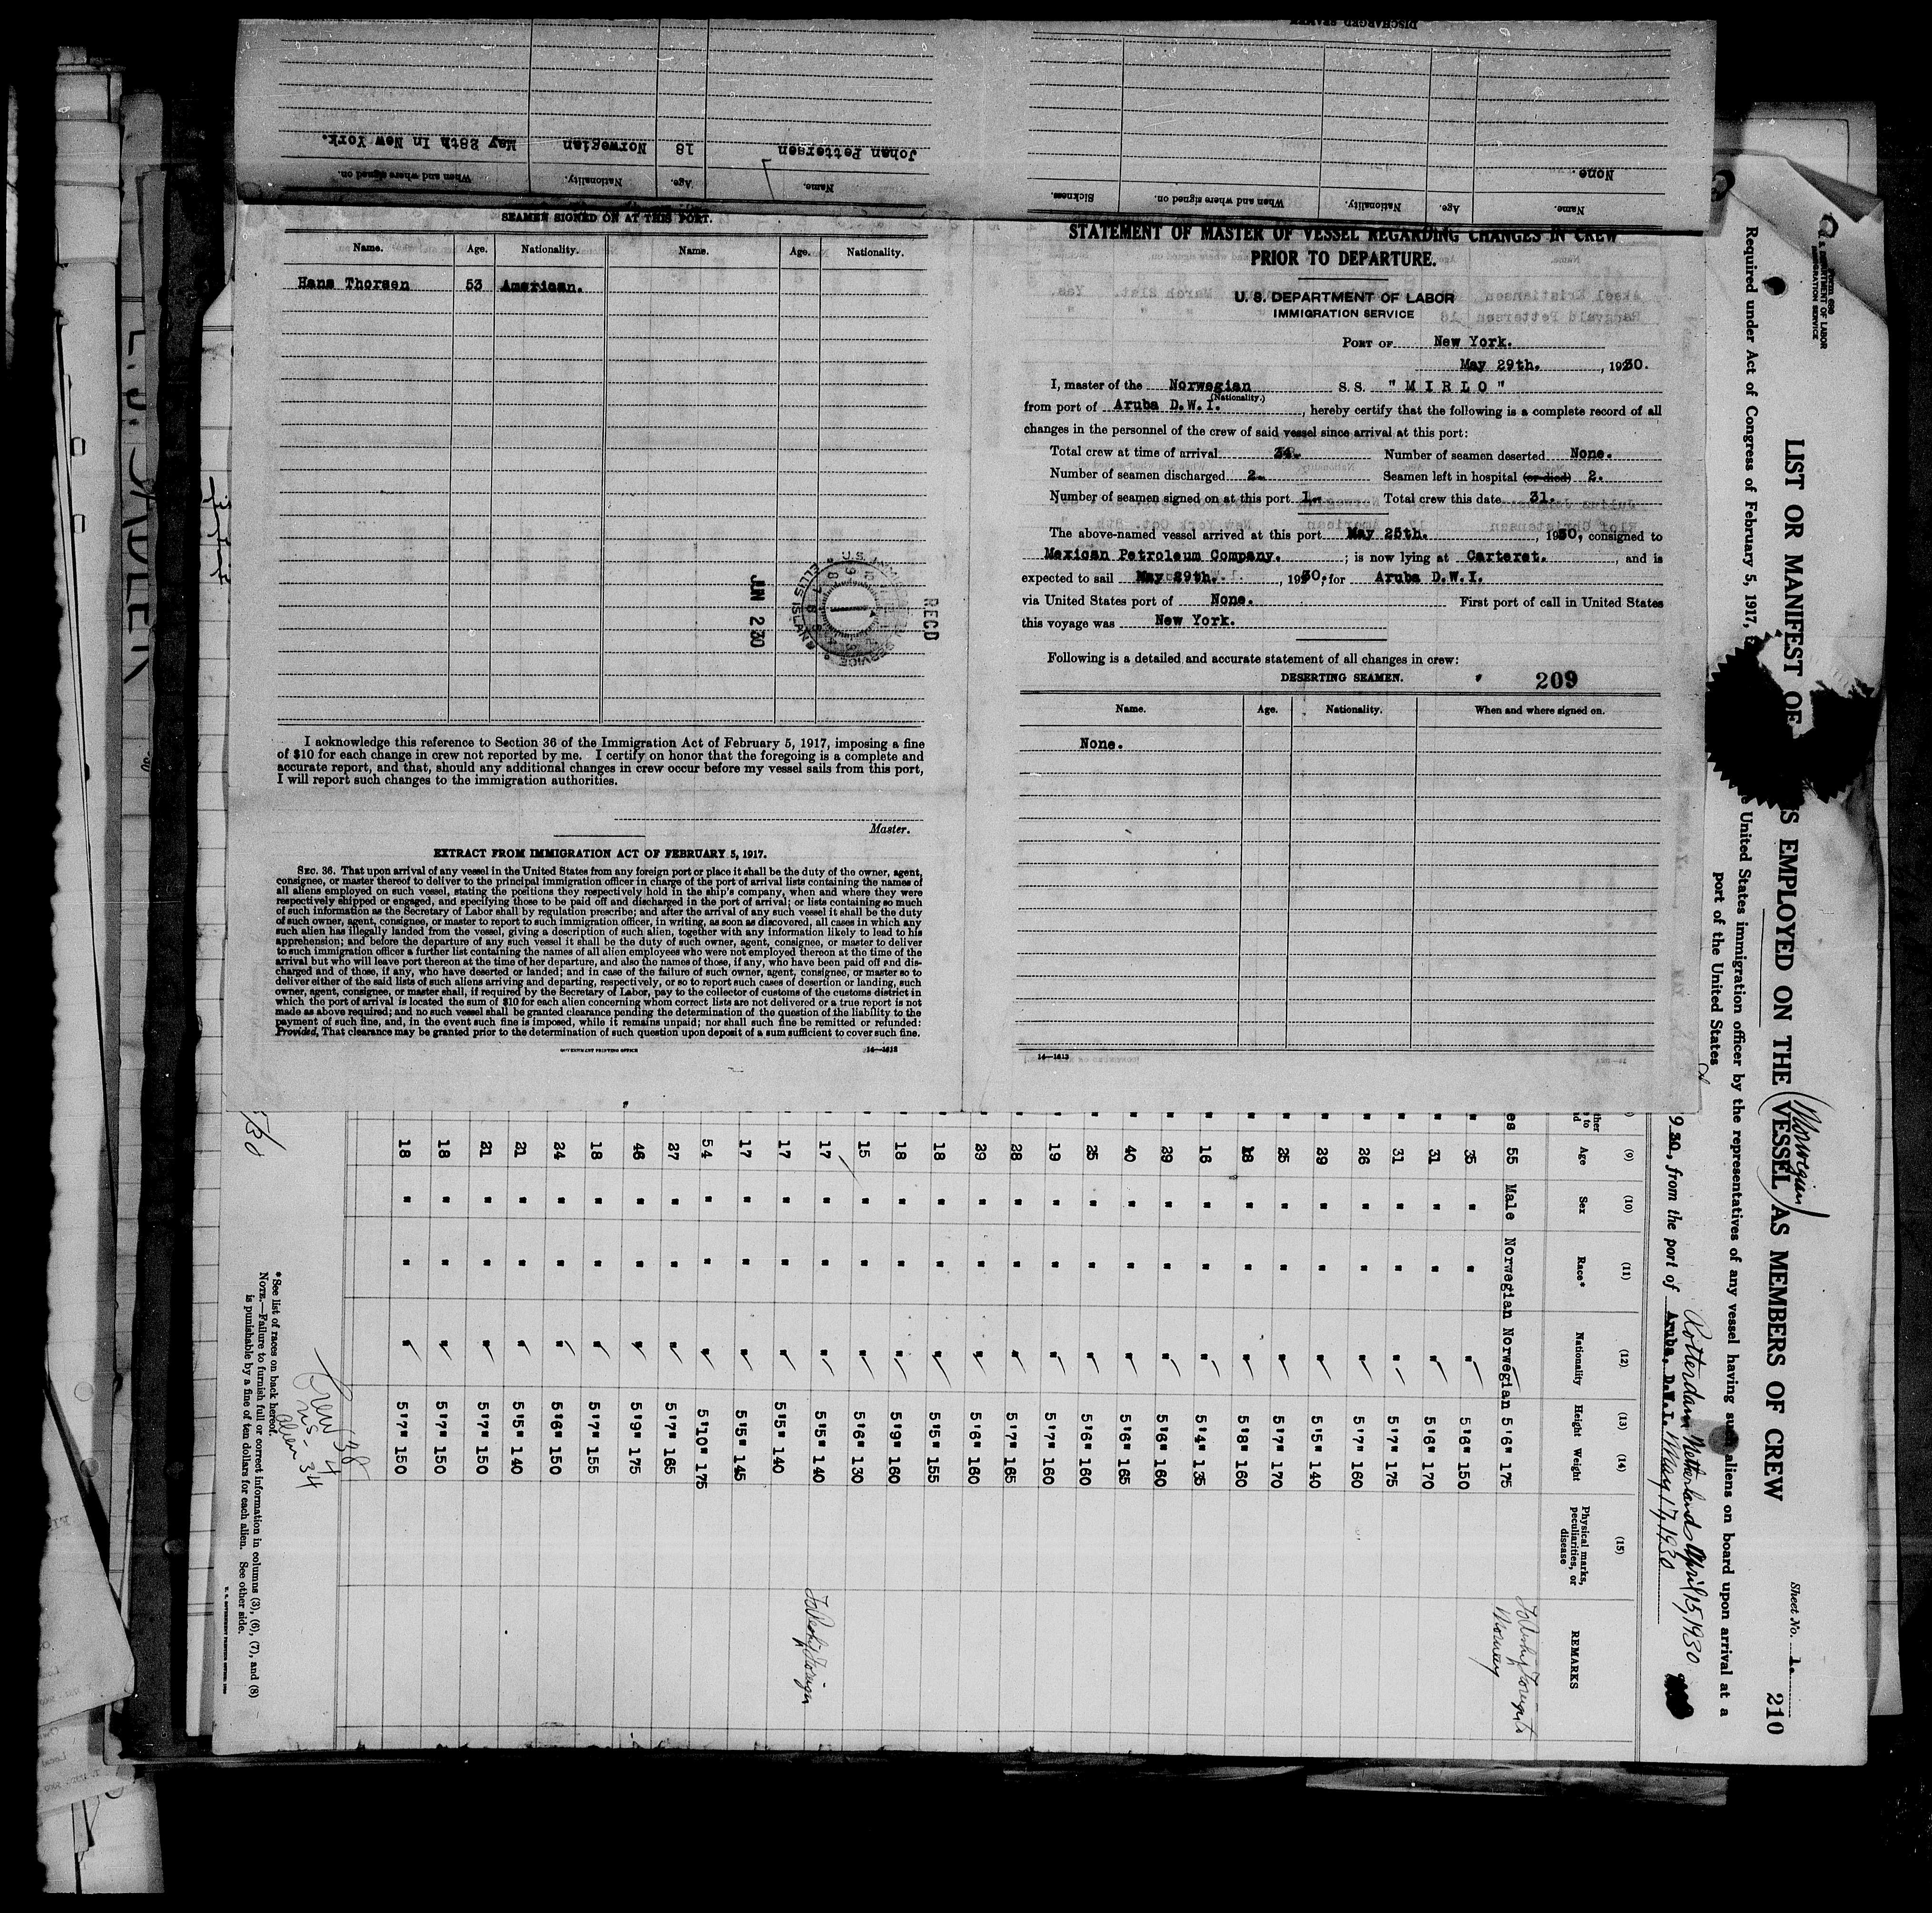 DISCHARGED SEAMEN
Name. Age. Nationality. When and where signed on. Sickness.
None.
Name. Age. Nationality. When and where signed on.
Johan Pettersen 18 Norwegian May 28th In New York.
SEAMEN SIGNED ON AT THIS PORT.
Name. Age. Nationality. Name. Age. Nationality.
Hans Thorsen 53 American.
RECD
JUN 2 30
ELLIS ISLAND
I acknowledge this reference to Section 36 of the Immigration Act of February 5, 1917, imposing a fine
of $10 for each change in crew not reported by me. I certify on honor that the foregoing is a complete and
accurate report, and that, should any additional changes in crew occur before my vessel sails from this port,
I will report such changes to the immigration authorities.
Master.
EXTRACT FROM IMMIGRATION ACT OF FEBRUARY 5, 1917.
SEC. 36. That upon arrival of any vessel in the United States from any foreign port or place it shall be the duty of the owner, agent,
consignee, or master thereof to deliver to the principal immigration officer in charge of the port of arrival lists containing the names of
all aliens employed on such vessel, stating the positions they respectively hold in the ship's company, when and where they were
respectively shipped or engaged, and specifying those to be paid off and discharged in the port of arrival; or lists containing so much
of such information as the Secretary of Labor shall by regulation prescribe; and after the arrival of any such vessel it shall be the duty
of such owner, agent, consignee, or master to report to such immigration officer, in writing, as soon as discovered, all cases in which any
such alien has illegally landed from the vessel, giving a description of such alien, together with any information likely to lead to his
apprehension; and before the departure of any such vessel it shall be the duty of such owner, agent, consignee, or master to deliver
to such immigration officer a further list containing the names of all alien employees who were not employed thereon at the time of the
arrival but who will leave port thereon at the time of her departure, and also the names of those, if any, who have been paid off and dis-
charged and of those, if any, who have deserted or landed; and in case of the failure of such owner, agent, consignee, or master so to
deliver either of the said lists of such aliens arriving and departing, respectively, or so to report such cases of desertion or landing, such
owner, agent, consignee, or master shall, if required by the Secretary of Labor, pay to the collector of customs of the customs district in
which the port of arrival is located the sum of $10 for each alien concerning whom correct lists are not delivered or a true report is not
made as above required; and no such vessel shall be granted clearance pending the determination of the question of the liability to the
payment of such fine, and, in the event such fine is imposed, while it remains unpaid; nor shall such fine be remitted or refunded:
Provided, That clearance may be granted prior to the determination of such question upon deposit of a sum sufficient to cover such fine.
GOVERNMENT PRINTING OFFICE 14—1613
STATEMENT OF MASTER OF VESSEL REGARDING CHANGES IN CREW
PRIOR TO DEPARTURE.
U. S. DEPARTMENT OF LABOR
IMMIGRATION SERVICE
PORT OF New York.
May 29th. , 1930.
I, master of the Norwegian S. S. " M I R L O "
(Nationality.)
from port of Aruba D.W.I. , hereby certify that the following is a complete record of all
changes in the personnel of the crew of said vessel since arrival at this port:
Total crew at time of arrival 34. Number of seamen deserted None.
Number of seamen discharged 2. Seamen left in hospital (or died) 2.
Number of seamen signed on at this port 1. Total crew this date 31.
The above-named vessel arrived at this port May 25th. , 1930, consigned to
Mexican Petroleum Company. ; is now lying at Carteret. , and is
expected to sail May 29th. , 1930, for Aruba D.W.I.
via United States port of None. First port of call in United States
this voyage was New York.
Following is a detailed and accurate statement of all changes in crew:
DESERTING SEAMEN. 209
Name. Age. Nationality. When and where signed on.
None.
14—1613
Form 689
U. S. DEPARTMENT OF LABOR
IMMIGRATION SERVICE
Sheet No. 1. 210
LIST OR MANIFEST OF S EMPLOYED ON THE (VESSEL) AS MEMBERS OF CREW
Norwegian
Required under Act of Congress of February 5, 1917, United States immigration officer by the representatives of any vessel having such aliens on board upon arrival at a
port of the United States
Rotterdam Netherlands April 15, 1930
930, from the port of Aruba, D.W.I. May 17, 1930
(9) (10) (11) (12) (13) (14) (15)
Age Sex Race* Nationality Height Weight Physical marks, peculiarities, or disease REMARKS
55 Male Norwegian Norwegian 5'6" 175
Norway
35 " " " 5'6" 150
31 " " " 5'6" 170
31 " " " 5'7" 175
26 " " " 5'7" 160
29 " " " 5'5" 140
25 " " " 5'7" 170
18 " " " 5'8" 160
16 " " " 5'4" 135
29 " " " 5'6" 160
40 " " " 5'6" 165
25 " " " 5'6" 160
19 " " " 5'7" 160
28 " " " 5'7" 165
39 " " " 5'6" 160
18 " " " 5'5" 155
18 " " " 5'9" 160
15 " " " 5'6" 130
17 " " " 5'5" 140
17 " " " 5'5" 140
17 " " " 5'5" 145
54 " " " 5'10" 175
37 " " " 5'7" 165
46 " " " 5'9" 175
18 " " " 5'7" 155
24 " " " 5'6" 150
21 " " " 5'5" 140
31 " " " 5'7" 150
18 " " " 5'7" 150
18 " " " 5'7" 150
Crew 38
alien - 34
*See list of races on back hereof.
NOTE.—Failure to furnish full or correct information in columns (3), (6), (7), and (8)
is punishable by a fine of ten dollars for each alien. See other side.